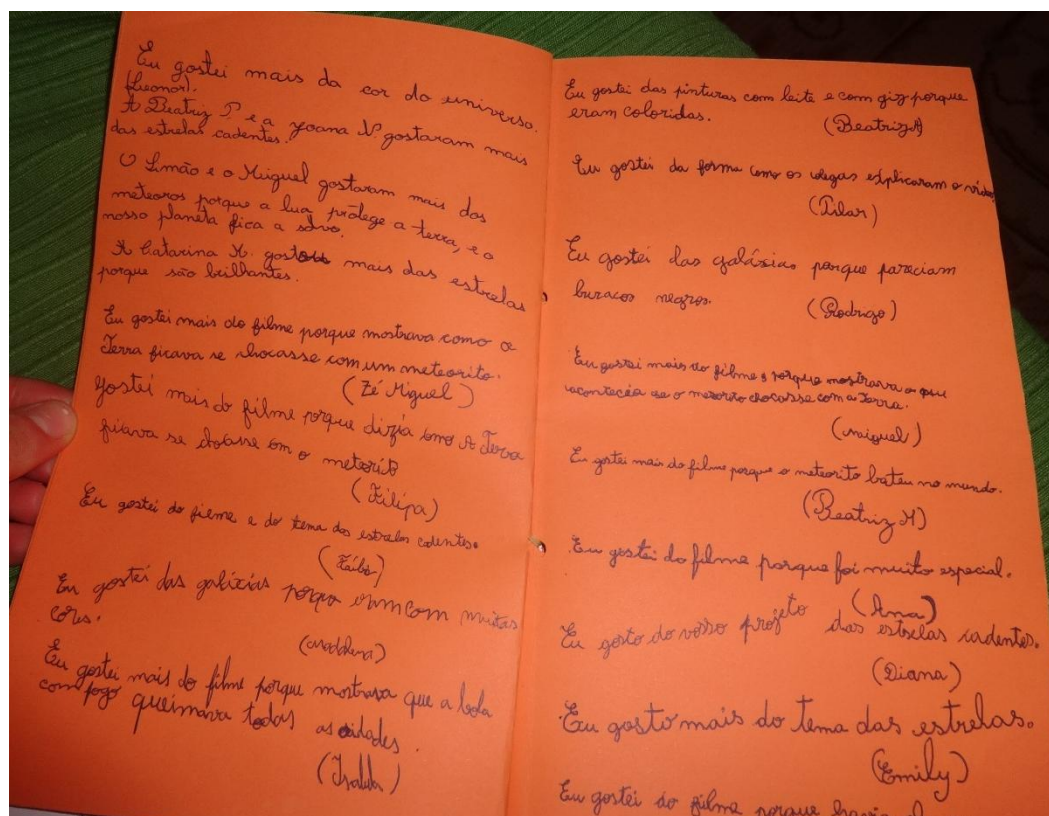 Eu gostei mais da cor do universo.
(Leonor).
A Beatriz P. e a Joana N. gostaram mais
das estrelas cadentes.
O Simão e o Miguel gostaram mais dos
meteoros porque a lua protege a terra, e o
nosso planeta fica a salvo.
A Catarina A. gostou mais das estrelas
porque são brilhantes.
Eu gostei mais do filme porque mostrava como a
Terra ficava se chocasse com um meteorito.
(Zé Miguel)
gostei mais do filme porque dizia como a Terra
ficava se chocasse com o meteorito
(Filipa)
Eu gostei do filme e do tema das estrelas cadentes.
Eu gostei das galáxias porque eram com muitas
cores.
(Madalena)
Eu gostei mais do filme porque mostrava que a bola
com fogo queimava todas as cidades.
Eu gostei das pinturas com leite e com giz porque
eram coloridas.
(Beatriz A)
Eu gostei da forma como os colegas explicaram o vídeo
(Pilar)
Eu gostei das galáxias porque pareciam
buracos negros.
(Rodrigo)
Eu gostei mais do filme, porque mostrava o que
acontecia se o chocasse com a Terra.
(Miguel)
Eu gostei mais do filme porque o meteorito bateu no mundo.
(Beatriz M)
Eu gostei do filme porque foi muito especial.
(Ana)
Eu gosto do vosso projeto das estrelas cadentes.
(Diana)
Eu gosto mais do tema das estrelas.
(Emily)
Eu gostei do filme porque havia